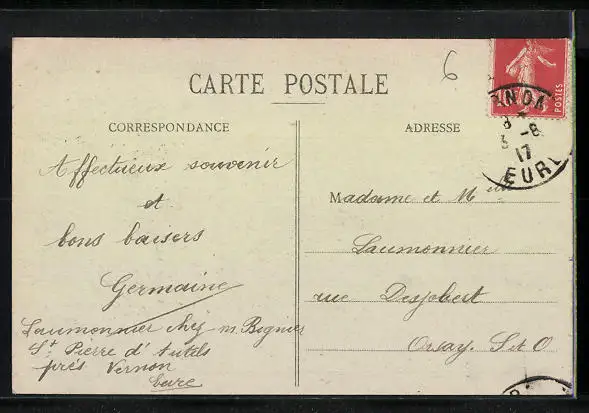 CARTE POSTALE
6
POSTES
CORRESPONDANCE
ADRESSE
8
3 -8
17
EURE
Affectueux souvenir
et
bons baisers
Germaine
Laumonnier chez m. Bignier
St Pierre d'Autils
près Vernon
Eure
Madame et Melle
Laumonnier
rue Desjobert
Orsay. S et O